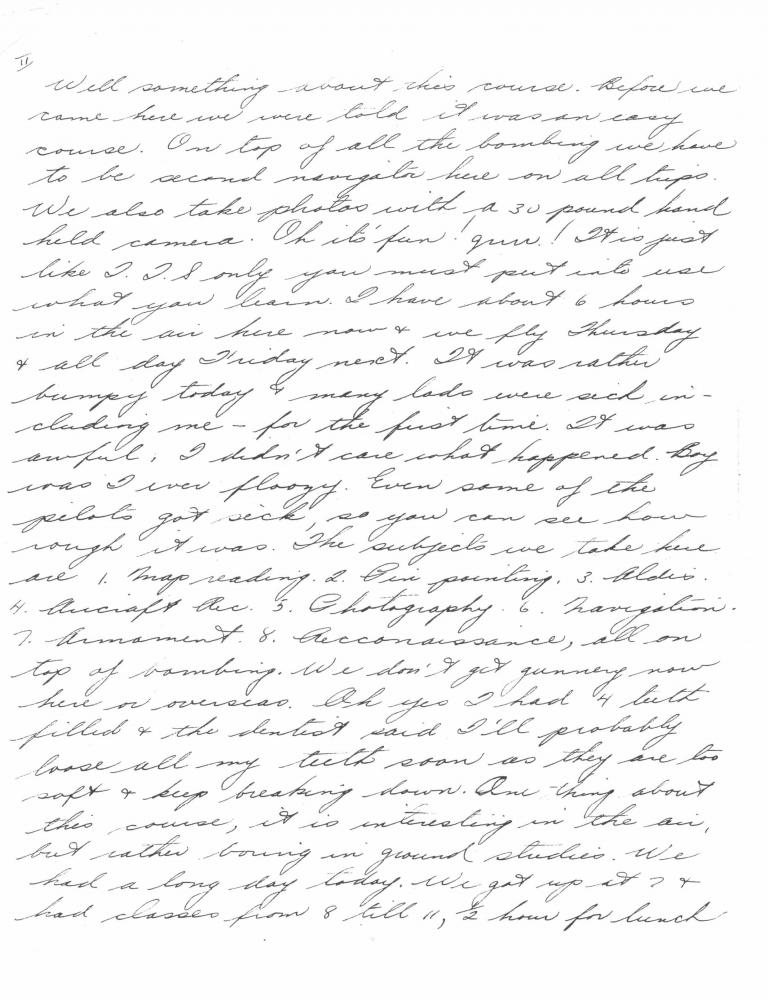 II
Well something about this course. Before we
came here we were told it was an easy
course. On top of all the bombing we have
to be second navigator here on all trips.
We also take photos with a 30 pound hand
held camera. Oh it's fun! grrr! It is just
like I.T.S only you must put into use
what you learn. I have about 6 hours
in the air here now & we fly Thursday
& all day Friday next. It was rather
bumpy today & many lads were sick in-
cluding me - for the first time. It was
awful, I didn't care what happened. Boy
was I ever floozy. Even some of the
pilots got sick, so you can see how
rough it was. The subjects we take here
are 1. Map reading. 2. Pin pointing. 3. Aldis.
4. Aircraft Rec. 5. Photography. 6. Navigation.
7. Armament. 8. Recconaissance, all on
top of bombing. We don't get gunnery now
here or overseas. Oh yes I had 4 teeth
filled & the dentist said I'll probably
loose all my teeth soon as they are too
soft & keep breaking down. One thing about
this course, it is interesting in the air,
but rather boring in ground studies. We
had a long day today. We got up at 7 &
had classes from 8 till 11, ½ hour for lunch